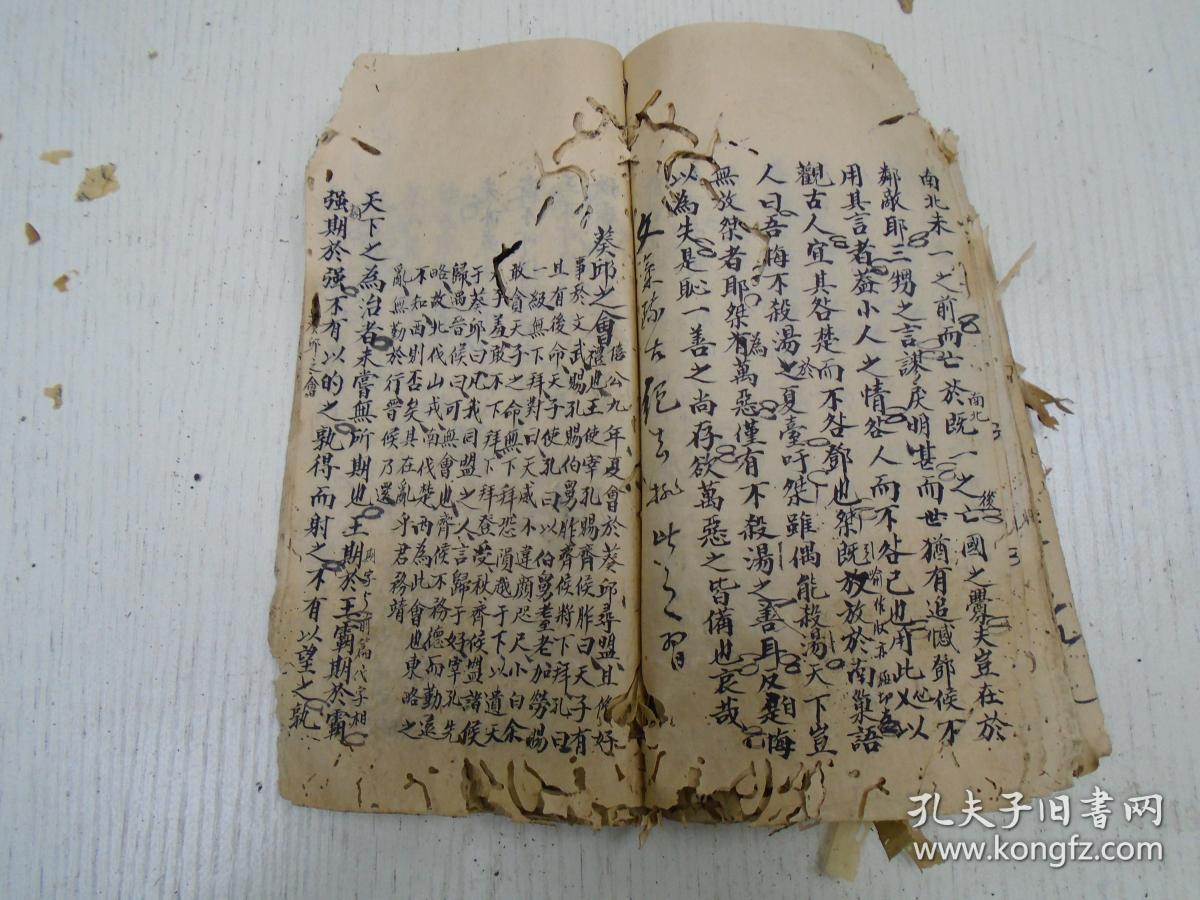 南北未一之前而亡於既一之後亡國之釁夫豈在於
南北
鄰敵耶三甥之言謀戾明甚而世猶有追憾鄧侯不
用其言者葢小人之情咎人而不咎己也用此心以
觀古人宜其咎楚而不咎鄧也桀既放於南巢語
人曰吾悔不殺湯於夏臺吁桀雖偶能殺湯天下豈
無放桀者耶桀有萬惡僅有不殺湯之善耳反自悔
為
以為失是恥一善之尚存欲萬惡之皆備也哀哉
文氣疏古
此之習
葵邱之會
僖公九年夏會於葵邱尋盟且修好
禮也王使宰孔賜齊侯胙曰天子有
事於文武使孔賜伯舅胙齊侯將下拜孔曰
且有後命天子使孔曰以伯舅耋老加勞賜
一級無下拜對曰天威不違顏咫尺小白余
敢貪天子之命無下拜恐隕越于下以遺天
子羞敢不下拜下拜登受秋齊侯盟諸侯
于葵邱曰凡我同盟之人言歸于好宰孔先
歸遇晉侯曰可無會也齊侯不務德而勤遠
略故北伐山戎南伐楚西為此會也東略之
不知西則否矣其在亂乎君務靖
亂無勤於行晉侯乃還
天下之為治者未嘗無所期也王期於王霸期於霸
强期於强不有以的之孰得而射之不有以望之孰
葵邱之會
孔夫子旧书网
www.kongfz.com